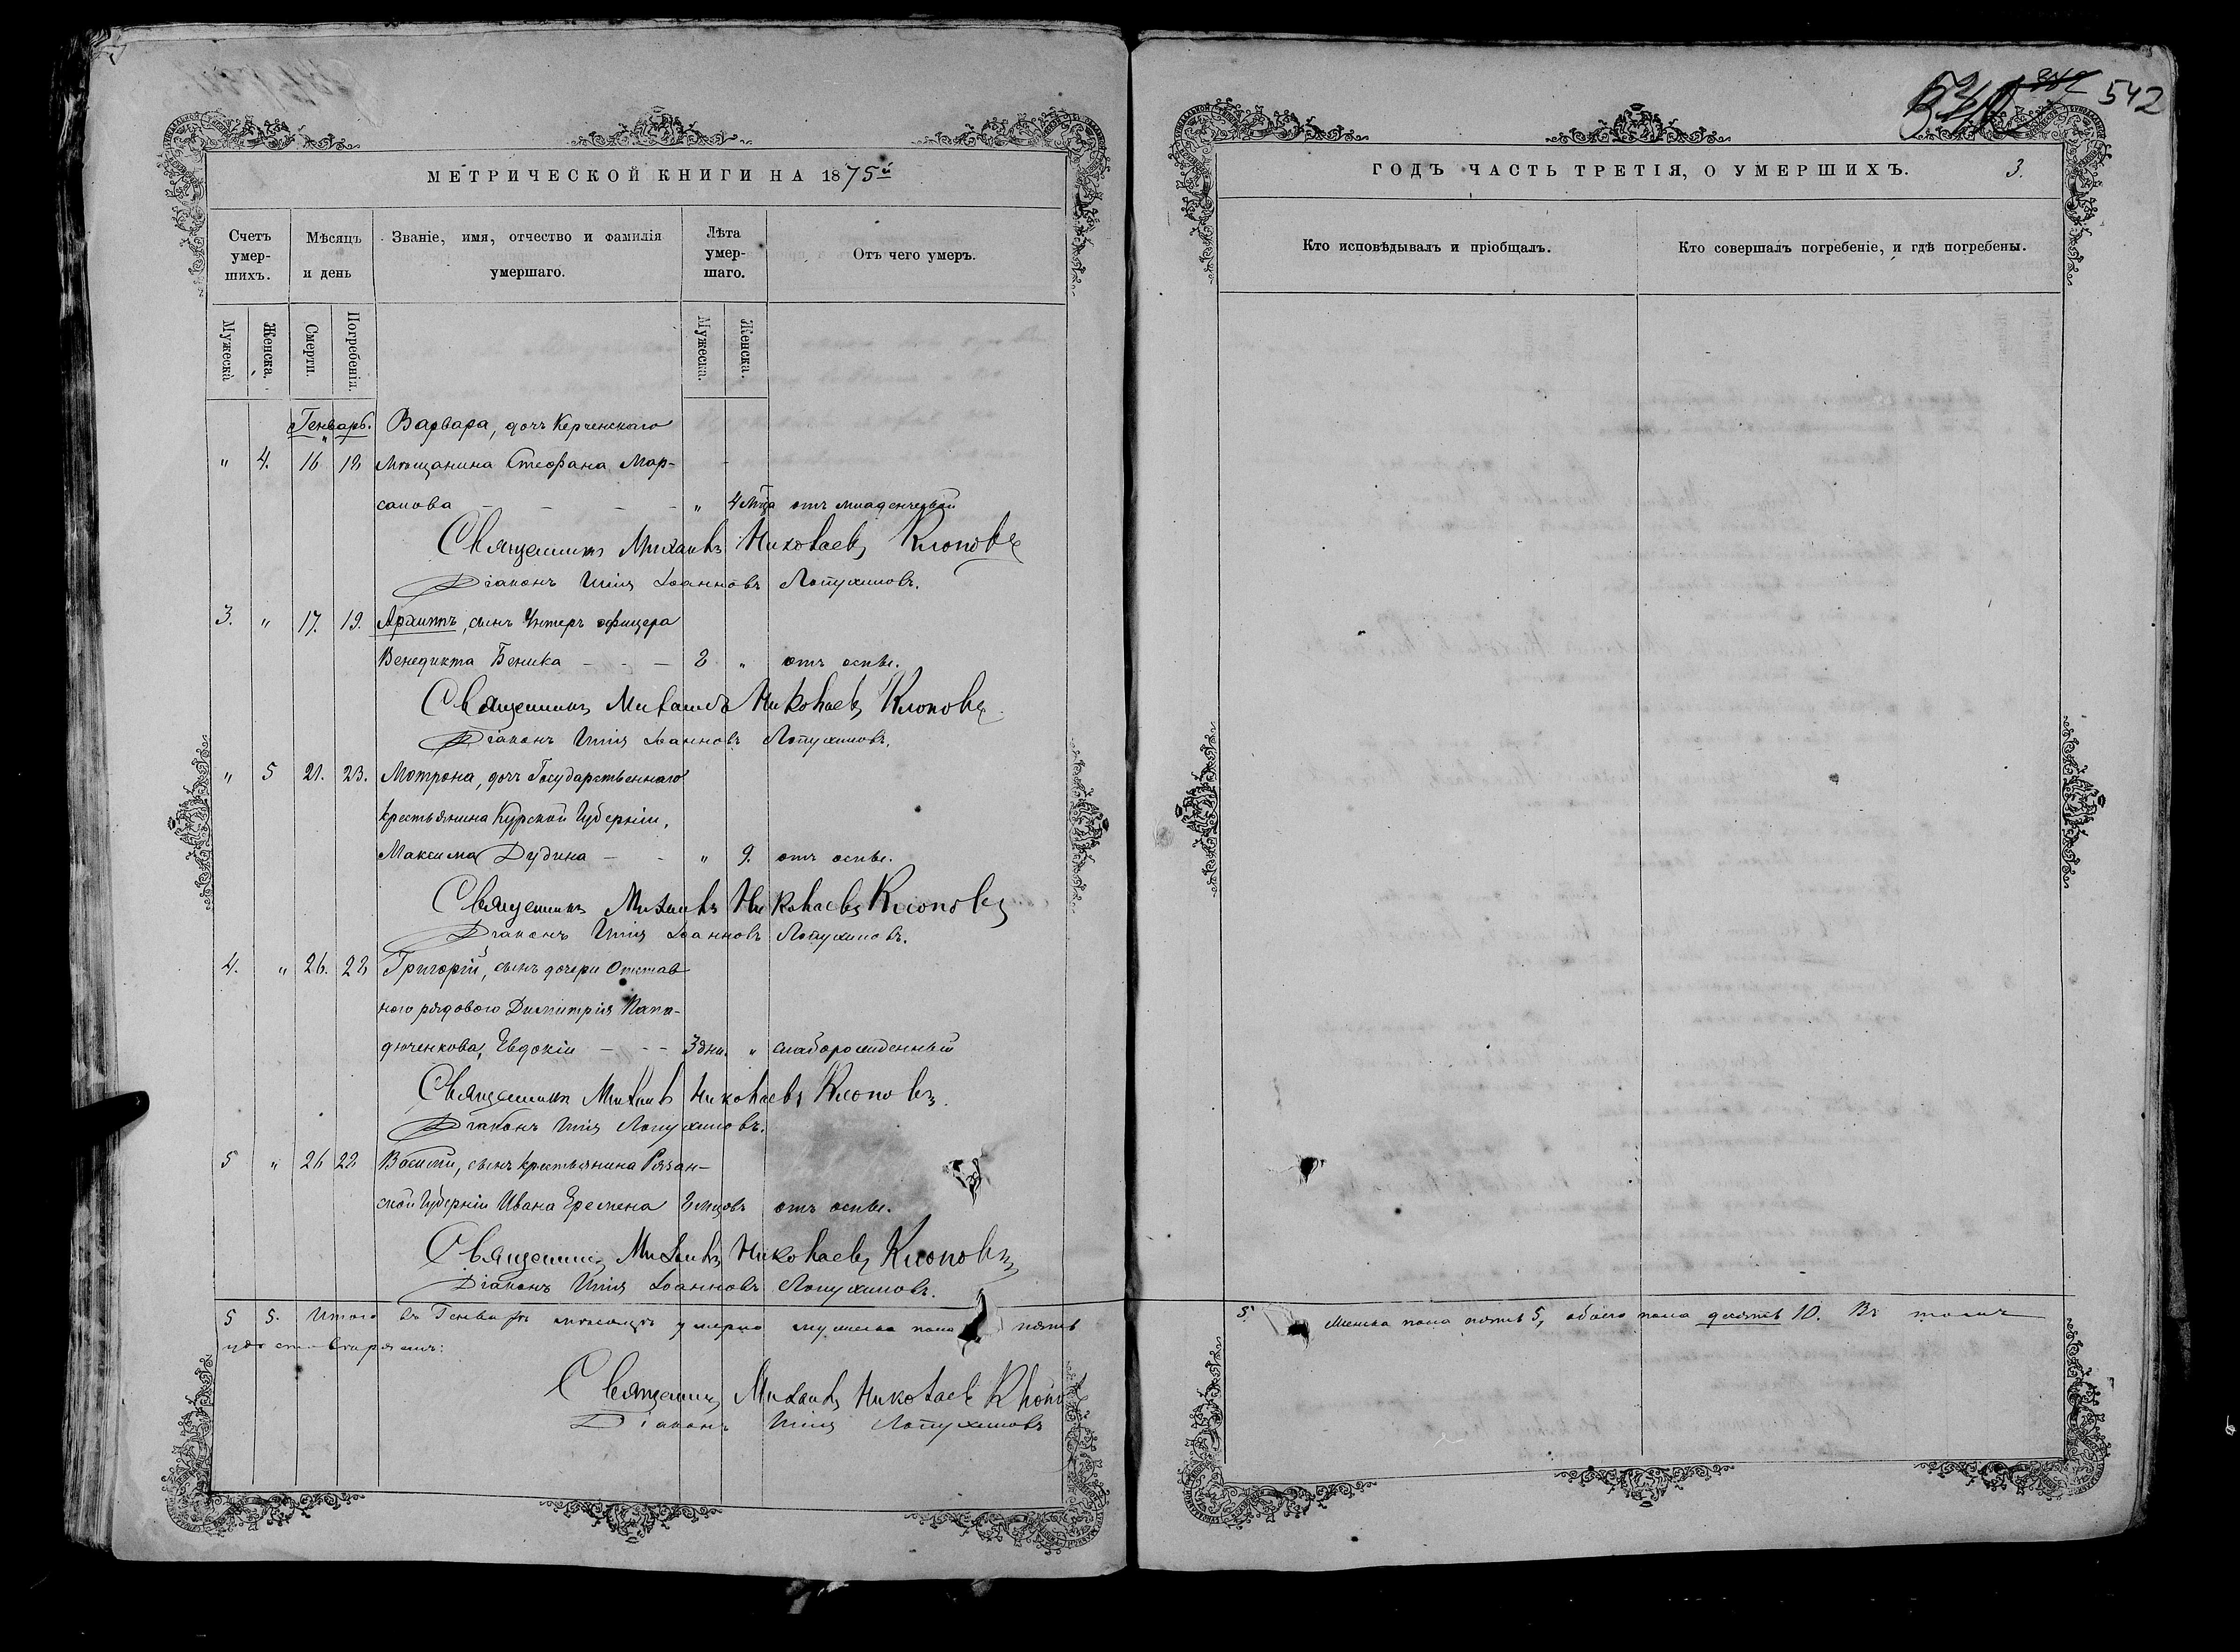 МЕТРИЧЕСКОЙ КНИГИ НА 1875й
Счетъ умер-шихъ. Мѣсяцъ и день Званіе, имя, отчество и фамилія умершаго. Лѣта умер-шаго. Отъ чего умеръ.
Мужеска Женска. Смерти. Погребенія. Мужеска. Женска.
Генварь. Варвара, дочь Керченскаго
" 4. 16 18 мѣщанина Стефана Мар-
" 4 м-ца отъ младенческой
Священникъ Михаилъ Николаевъ Клоповъ
Діаконъ Илія Іоанновъ Лопухиновъ.
3. " 17. 19. Архиппъ, сынъ Унтеръ офицера
Венедикта Беника - - - 2 " отъ оспы.
Священникъ Михаилъ Николаевъ Клоповъ
Діаконъ Илія Іоанновъ Лопухиновъ.
" 5 21. 23. Мотрона, дочь Государственнаго
крестьянина Курской Губерніи,
Максима Дудина - - " 9. отъ оспы.
Священникъ Михаилъ Николаевъ Клоповъ
Діаконъ Илія Іоанновъ Лопухиновъ.
4. " 26. 28 Григорій, сынъ дочери Отстав
ного рядового Димитрія
Евдокіи - - - 3 дни. " слаборожденный
Священникъ Михаилъ Николаевъ Клоповъ.
Діаконъ Илія Лопухиновъ.
5 " 26 28 Василій, сынъ крестьянина Рязан-
ской Губерніи Ивана Еремена 8 м-цовъ отъ оспы.
Священникъ Михаилъ Николаевъ Клоповъ
Діаконъ Илія Іоанновъ Лопухиновъ.
5 5. Итого въ Генварѣ мѣсяцѣ умерло мужеска пола пять
Священникъ Михаилъ Николаевъ
Діаконъ Илія Лопухиновъ
542
ГОДЪ ЧАСТЬ ТРЕТІЯ, О УМЕРШИХЪ. 3.
Кто исповѣдывалъ и пріобщалъ. Кто совершалъ погребеніе, и гдѣ погребены.
5. женска пола пять 5, обоего пола десять 10. Въ томъ